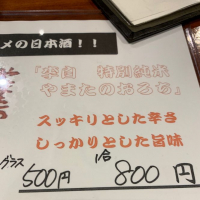 メの日本酒！！
『李白 特別純米
やまたのおろち』
スッキリとした辛さ
しっかりとした旨味
グラス 1合
500円 800円